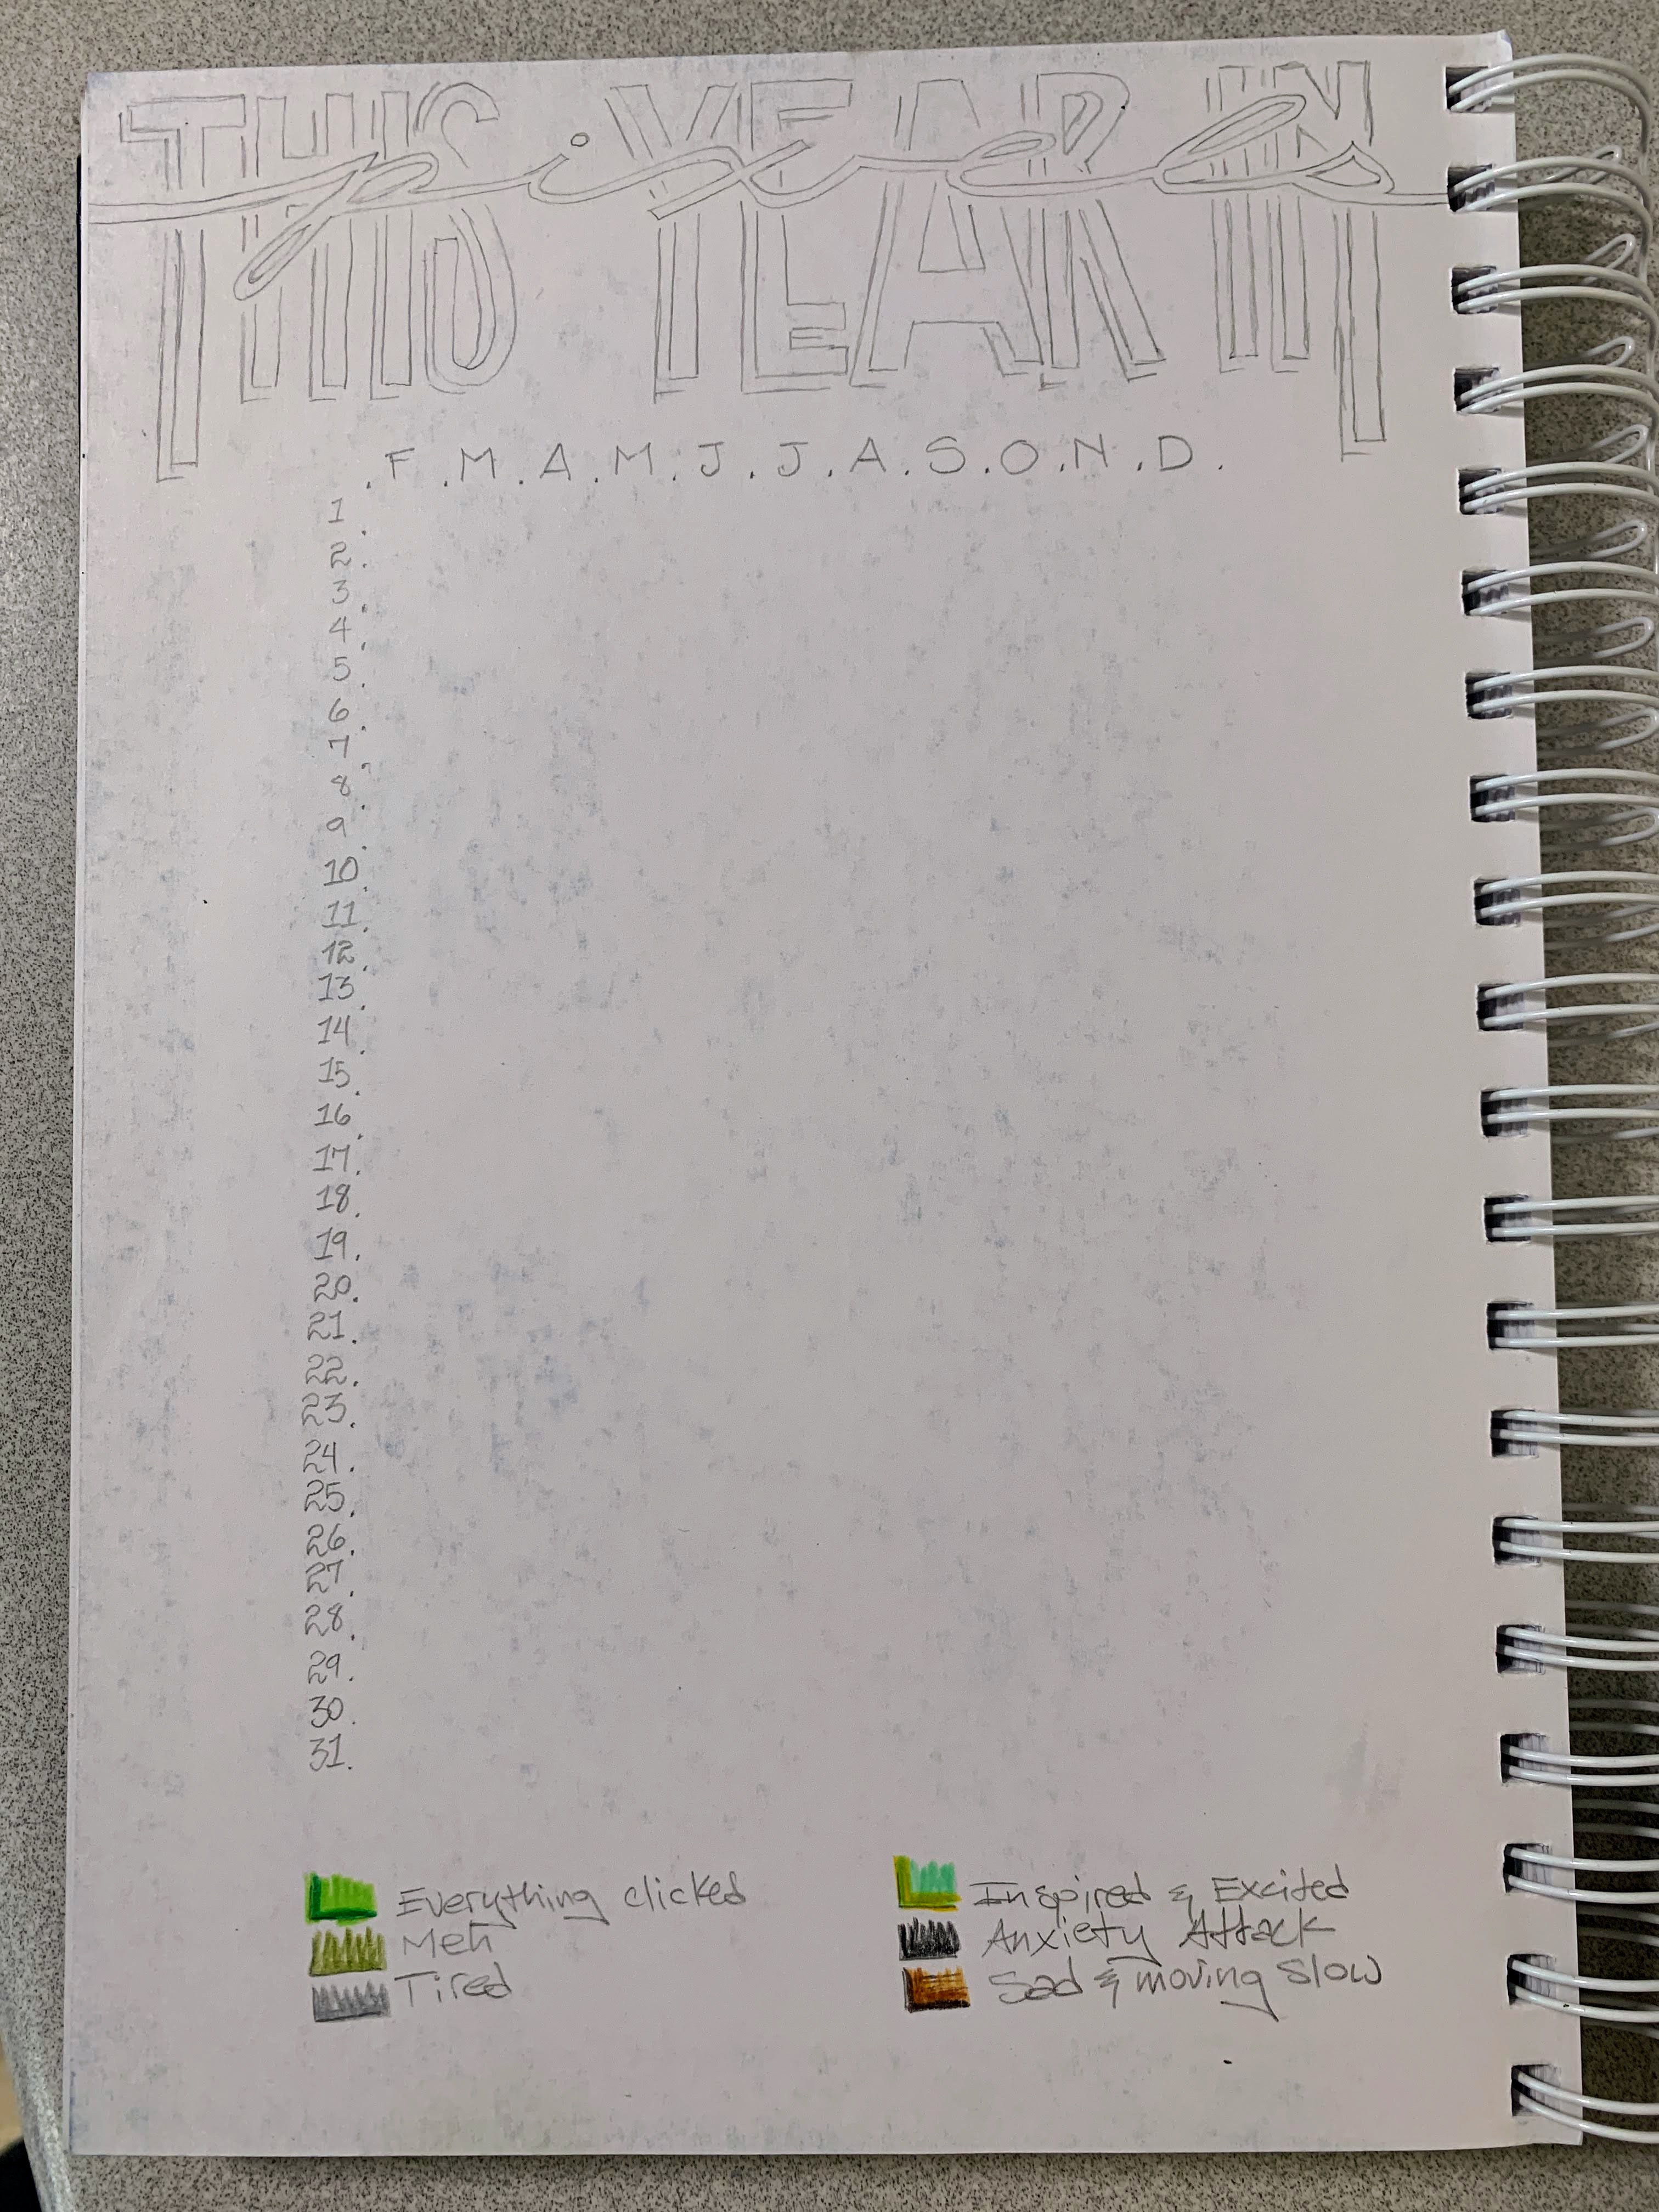 THIS YEAR IN
pixels
.F.M.A.M.J.J.A.S.O.N.D.
1.
2.
3.
4.
5.
6.
7.
8.
9.
10.
11.
12.
13.
14.
15.
16.
17.
18.
19.
20.
21.
22.
23.
24.
25.
26.
27.
28.
29.
30.
31.
Everything clicked
Meh
Tired
Inspired & Excited
Anxiety Attack
Sad & moving slow